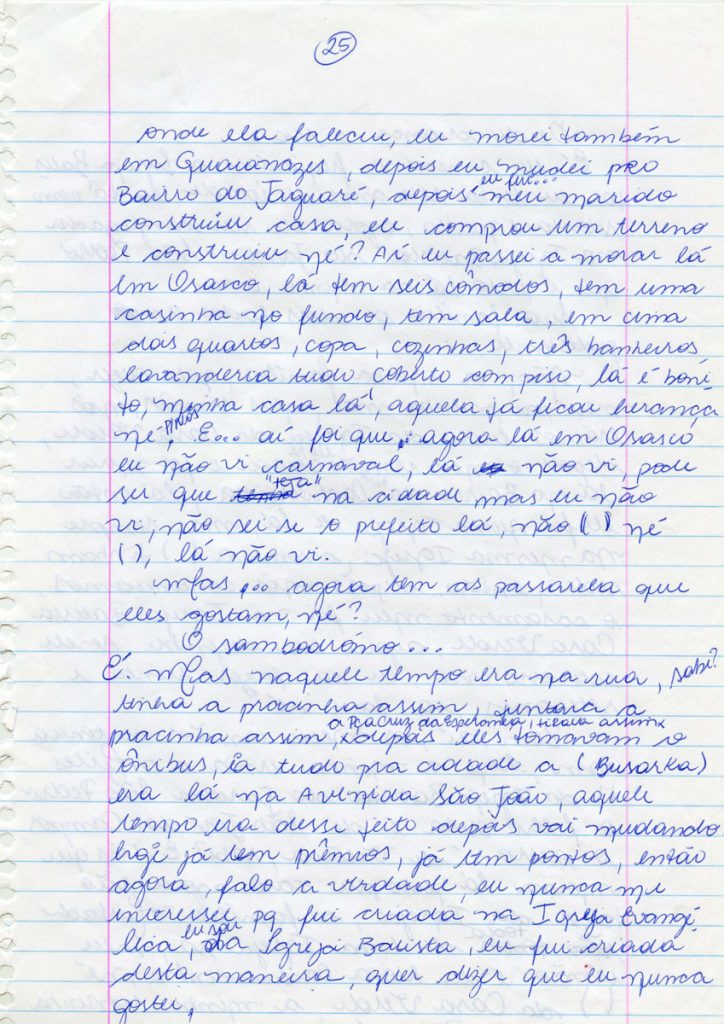 25
onde ela faleceu, eu morei também
em Guaianazes, depois eu mudei pro
Bairro do Jaguaré, depois eu fui... meu marido
construiu casa, ele comprou um terreno
e construiu né? Aí eu passei a morar lá
em Osasco, lá tem seis cômodos, tem uma
casinha no fundo, tem sala, em cima
dois quartos, copa, cozinhas, três banheiros,
lavanderia tudo coberto com piso, lá é boni
to, minha casa lá, aquela já ficou herança
né. E... aí foi que... agora lá em Osasco
eu não vi carnaval, lá não vi, pode
ser que "teja" na cidade, mas eu não
vi, não sei se o prefeito lá, não ( ) né
( ), lá não vi.
Mas ... agora tem as passarela que
eles gostam, né?
O sambodrómo...
É. Mas naquele tempo era na rua, sabe?
tinha a pracinha assim, juntava a
pracinha assim, a Pça Cruz da Esperança, ficava assim
x depois eles tomavam o
ônibus, ia tudo pra cidade a (Busarka)
era lá na Avenida São João, aquele
tempo era desse jeito depois vai mudando
hoje já tem prêmios, já tem pontos, então
agora, falo a verdade, eu nunca me
interessei pq fui criada na Igreja Evangé
lica, eu sou da Igreja Batista, eu fui criada
desta maneira, quer dizer que eu nunca
gostei,